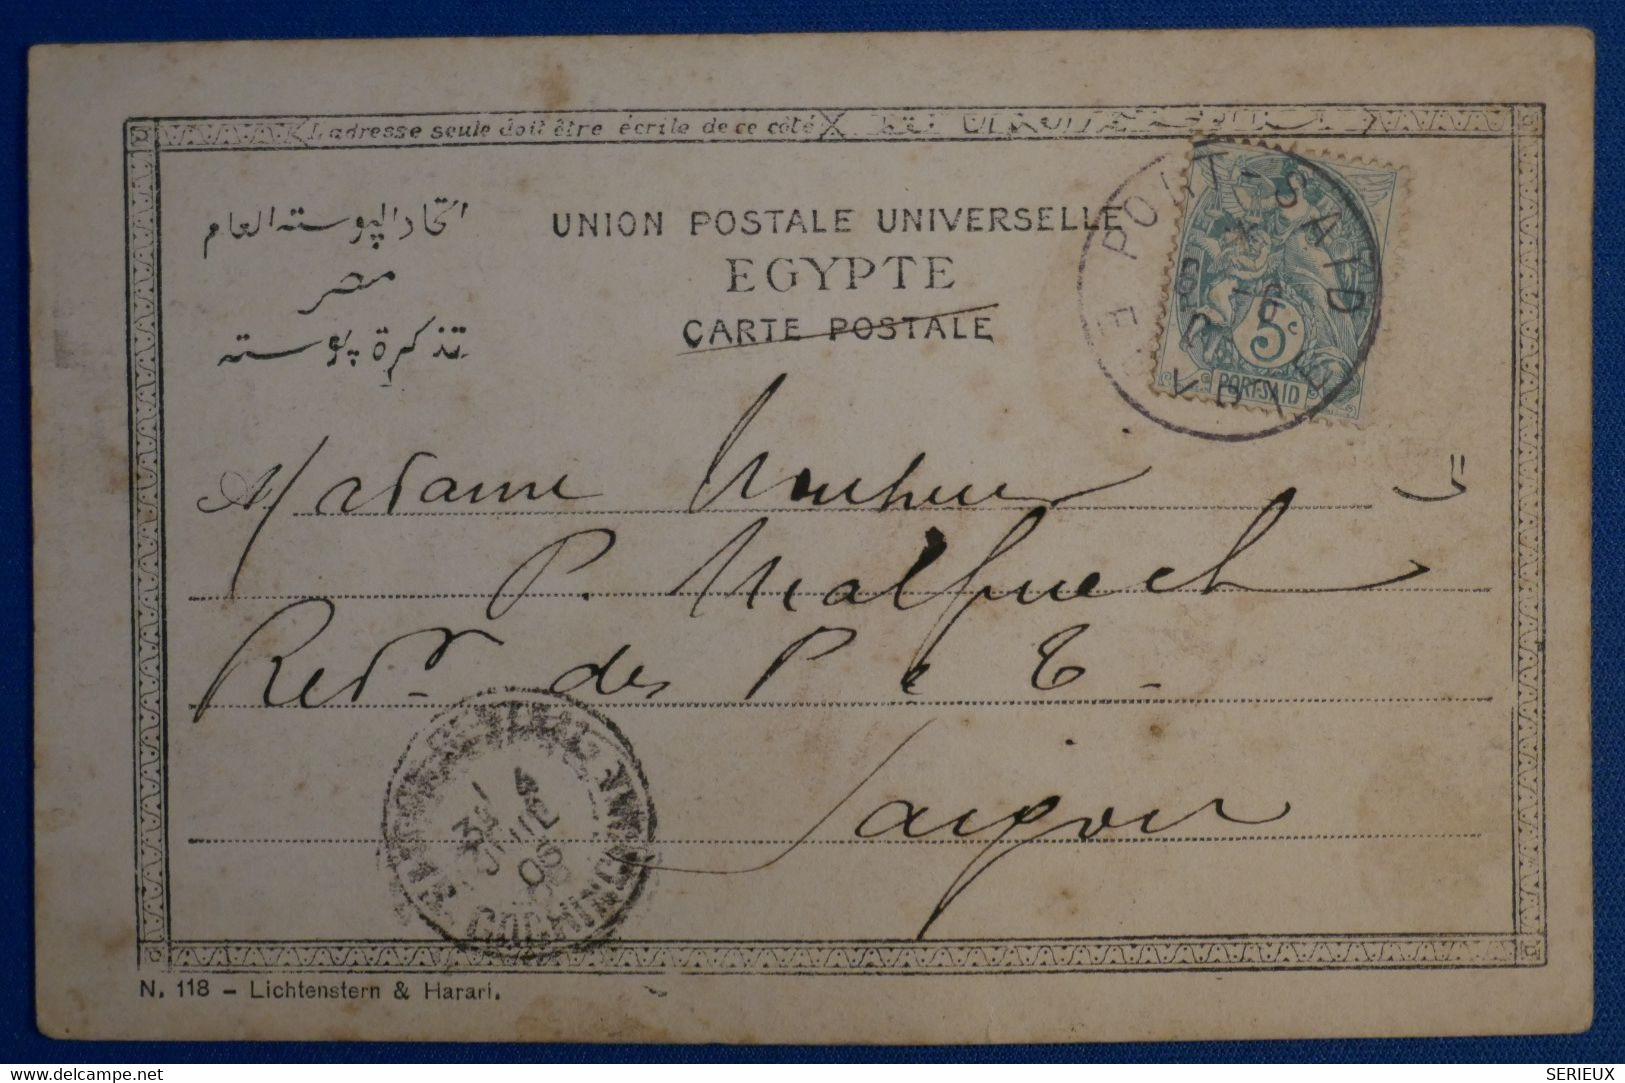 L'adresse seule doit être écrite de ce côté
اتحاد البوسته العام
مصر
تذكرة بوسته
UNION POSTALE UNIVERSELLE
EGYPTE
CARTE POSTALE
PORT-SAID
5c
PORT-SAID
Madame
P. Malfuech
des P e T
Saigon
COCHINCHINE
N. 118 - Lichtenstern & Harari.
www.delcampe.net
SERIEUX